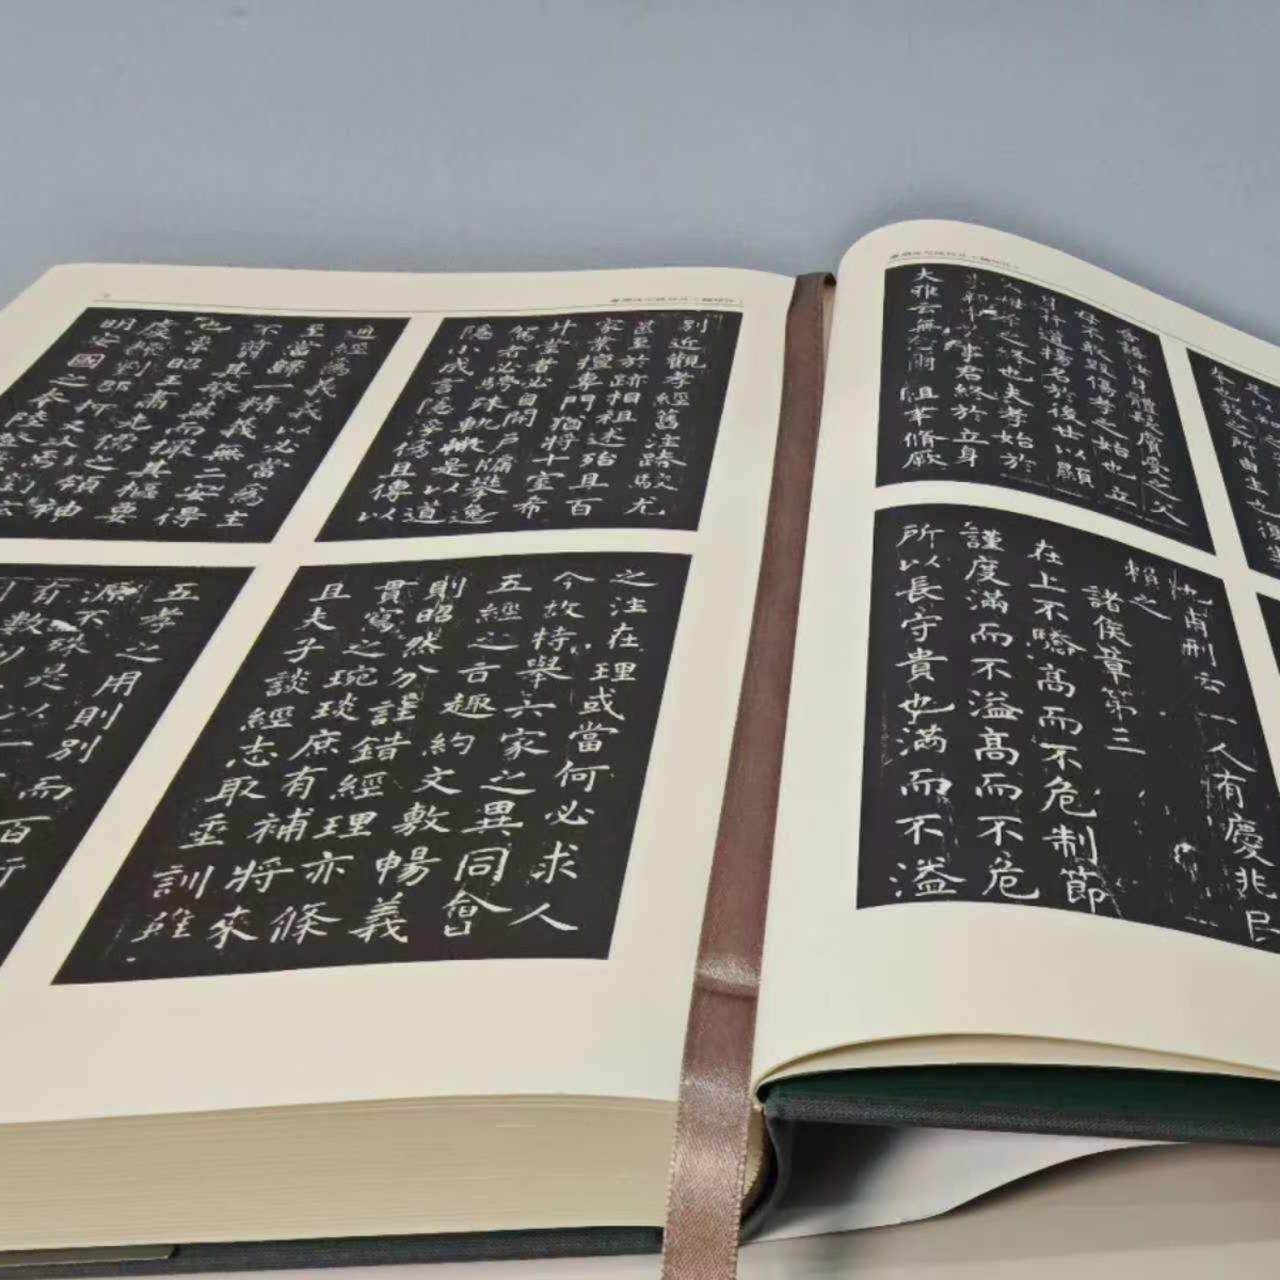 別近觀孝經舊注踳駮尤
甚至於跡相祖述殆且百
家業擅專門猶將十室希
升堂者必自開戶牖攀逸
駕者必騁殊軌轍是以道
隱小成言隱浮偽且傳以
通經為義義以必當為主
至當歸一精義無二安得
不翦其繁蕪而撮其樞要
也韋昭王肅先儒之領袖
虞翻劉邵抑又次焉劉炫
明安國之本陸
之注在理或當何必求人
今故特舉六家之異同會
五經之旨趣約文敷暢義
則昭然分謹錯經理亦條
貫寫之琬琰庶有補將來
且夫子談經志取垂訓雖
五孝之用則別而百行
源不殊是以一
有數
身體髮膚受之父
母不敢毀傷孝之始也立
身行道揚名於後世以顯
父母孝之終也夫孝始於
事親 事君終於立身
大雅云無念爾祖聿脩厥
甫刑云一人有慶兆民
賴之
諸侯章第三
在上不驕高而不危制節
謹度滿而不溢高而不危
所以長守貴也滿而不溢